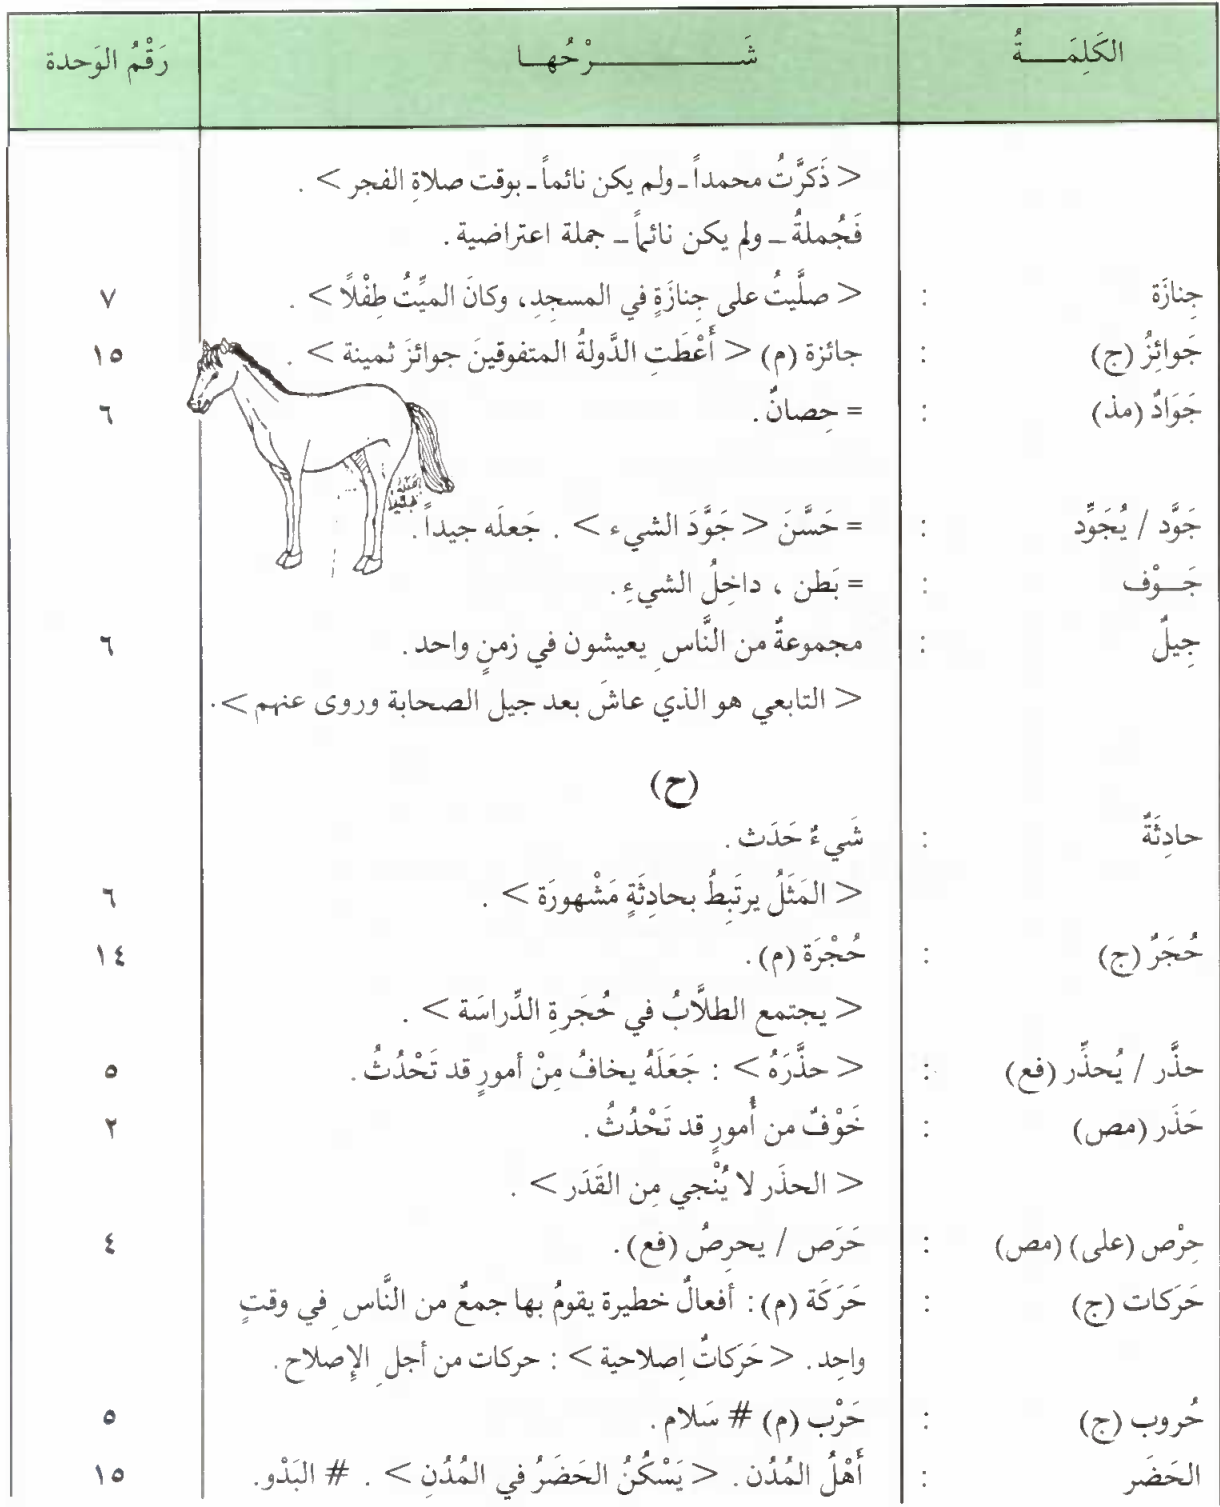 الكَلِمَـــةُ شَـــــــرْحُهـا رَقْمُ الوَحدة
< ذَكرَّتُ محمداً ـ ولم يكن نائماً ـ بوقت صلاةِ الفجر > .
فَجُملةُ ـ ولم يكن نائماً ـ جملة اعتراضية .
جِنازَة : < صلَّيتُ على جِنازَةٍ في المسجدِ، وكانَ الميِّتُ طِفْلاً > . ٧
جَوائِزُ (ج) : جائزة (م) < أَعْطَتِ الدَّولةُ المتفوقينَ جوائزَ ثمينة > . ١٥
جَوَادٌ (مذ) : = حِصانٌ . ٦
جَوَّد / يُجَوِّد : = حَسَّنَ < جَوَّدَ الشيء > . جَعلَه جيداً .
جَـــوْف : = بَطن ، داخِلُ الشيءِ .
جِيلٌ : مجموعةٌ من النَّاسِ يعيشون في زمنٍ واحد . ٦
< التابعي هو الذي عاشَ بعد جيل الصحابة وروى عنهم > .
(ح)
حادِثَةٌ : شَيءٌ حَدَث .
< المَثَلُ يرتَبِطُ بحادِثَةٍ مَشْهورَة > . ٦
حُجَرٌ (ج) : حُجْرَة (م) . ١٤
< يجتمع الطلَّابُ في حُجَرةِ الدِّراسَة > .
حذَّر / يُحذِّر (فع) : < حذَّرَهُ > : جَعَلَهُ يخافُ مِنْ أمورٍ قد تَحْدُثُ . ٥
حَذَر (مص) : خَوْفٌ من أُمورٍ قد تَحْدُثُ . ٢
< الحذَر لا يُنْجي مِن القَدَر > .
حِرْص (على) (مص) : حَرَص / يحرِصُ (فع) . ٤
حَرَكات (ج) : حَرَكَة (م) : أفعالٌ خطيرة يقومُ بها جمعٌ من النَّاسِ في وقتٍ
واحِد . < حَرَكاتٌ إصلاحية > : حركات من أجلِ الإِصلاح .
حُروب (ج) : حَرْب (م) # سَلام . ٥
الحَضَر : أَهْلُ المُدُن . < يَسْكُنُ الحَضَرُ في المُدُنِ > . # البَدْو. ١٥